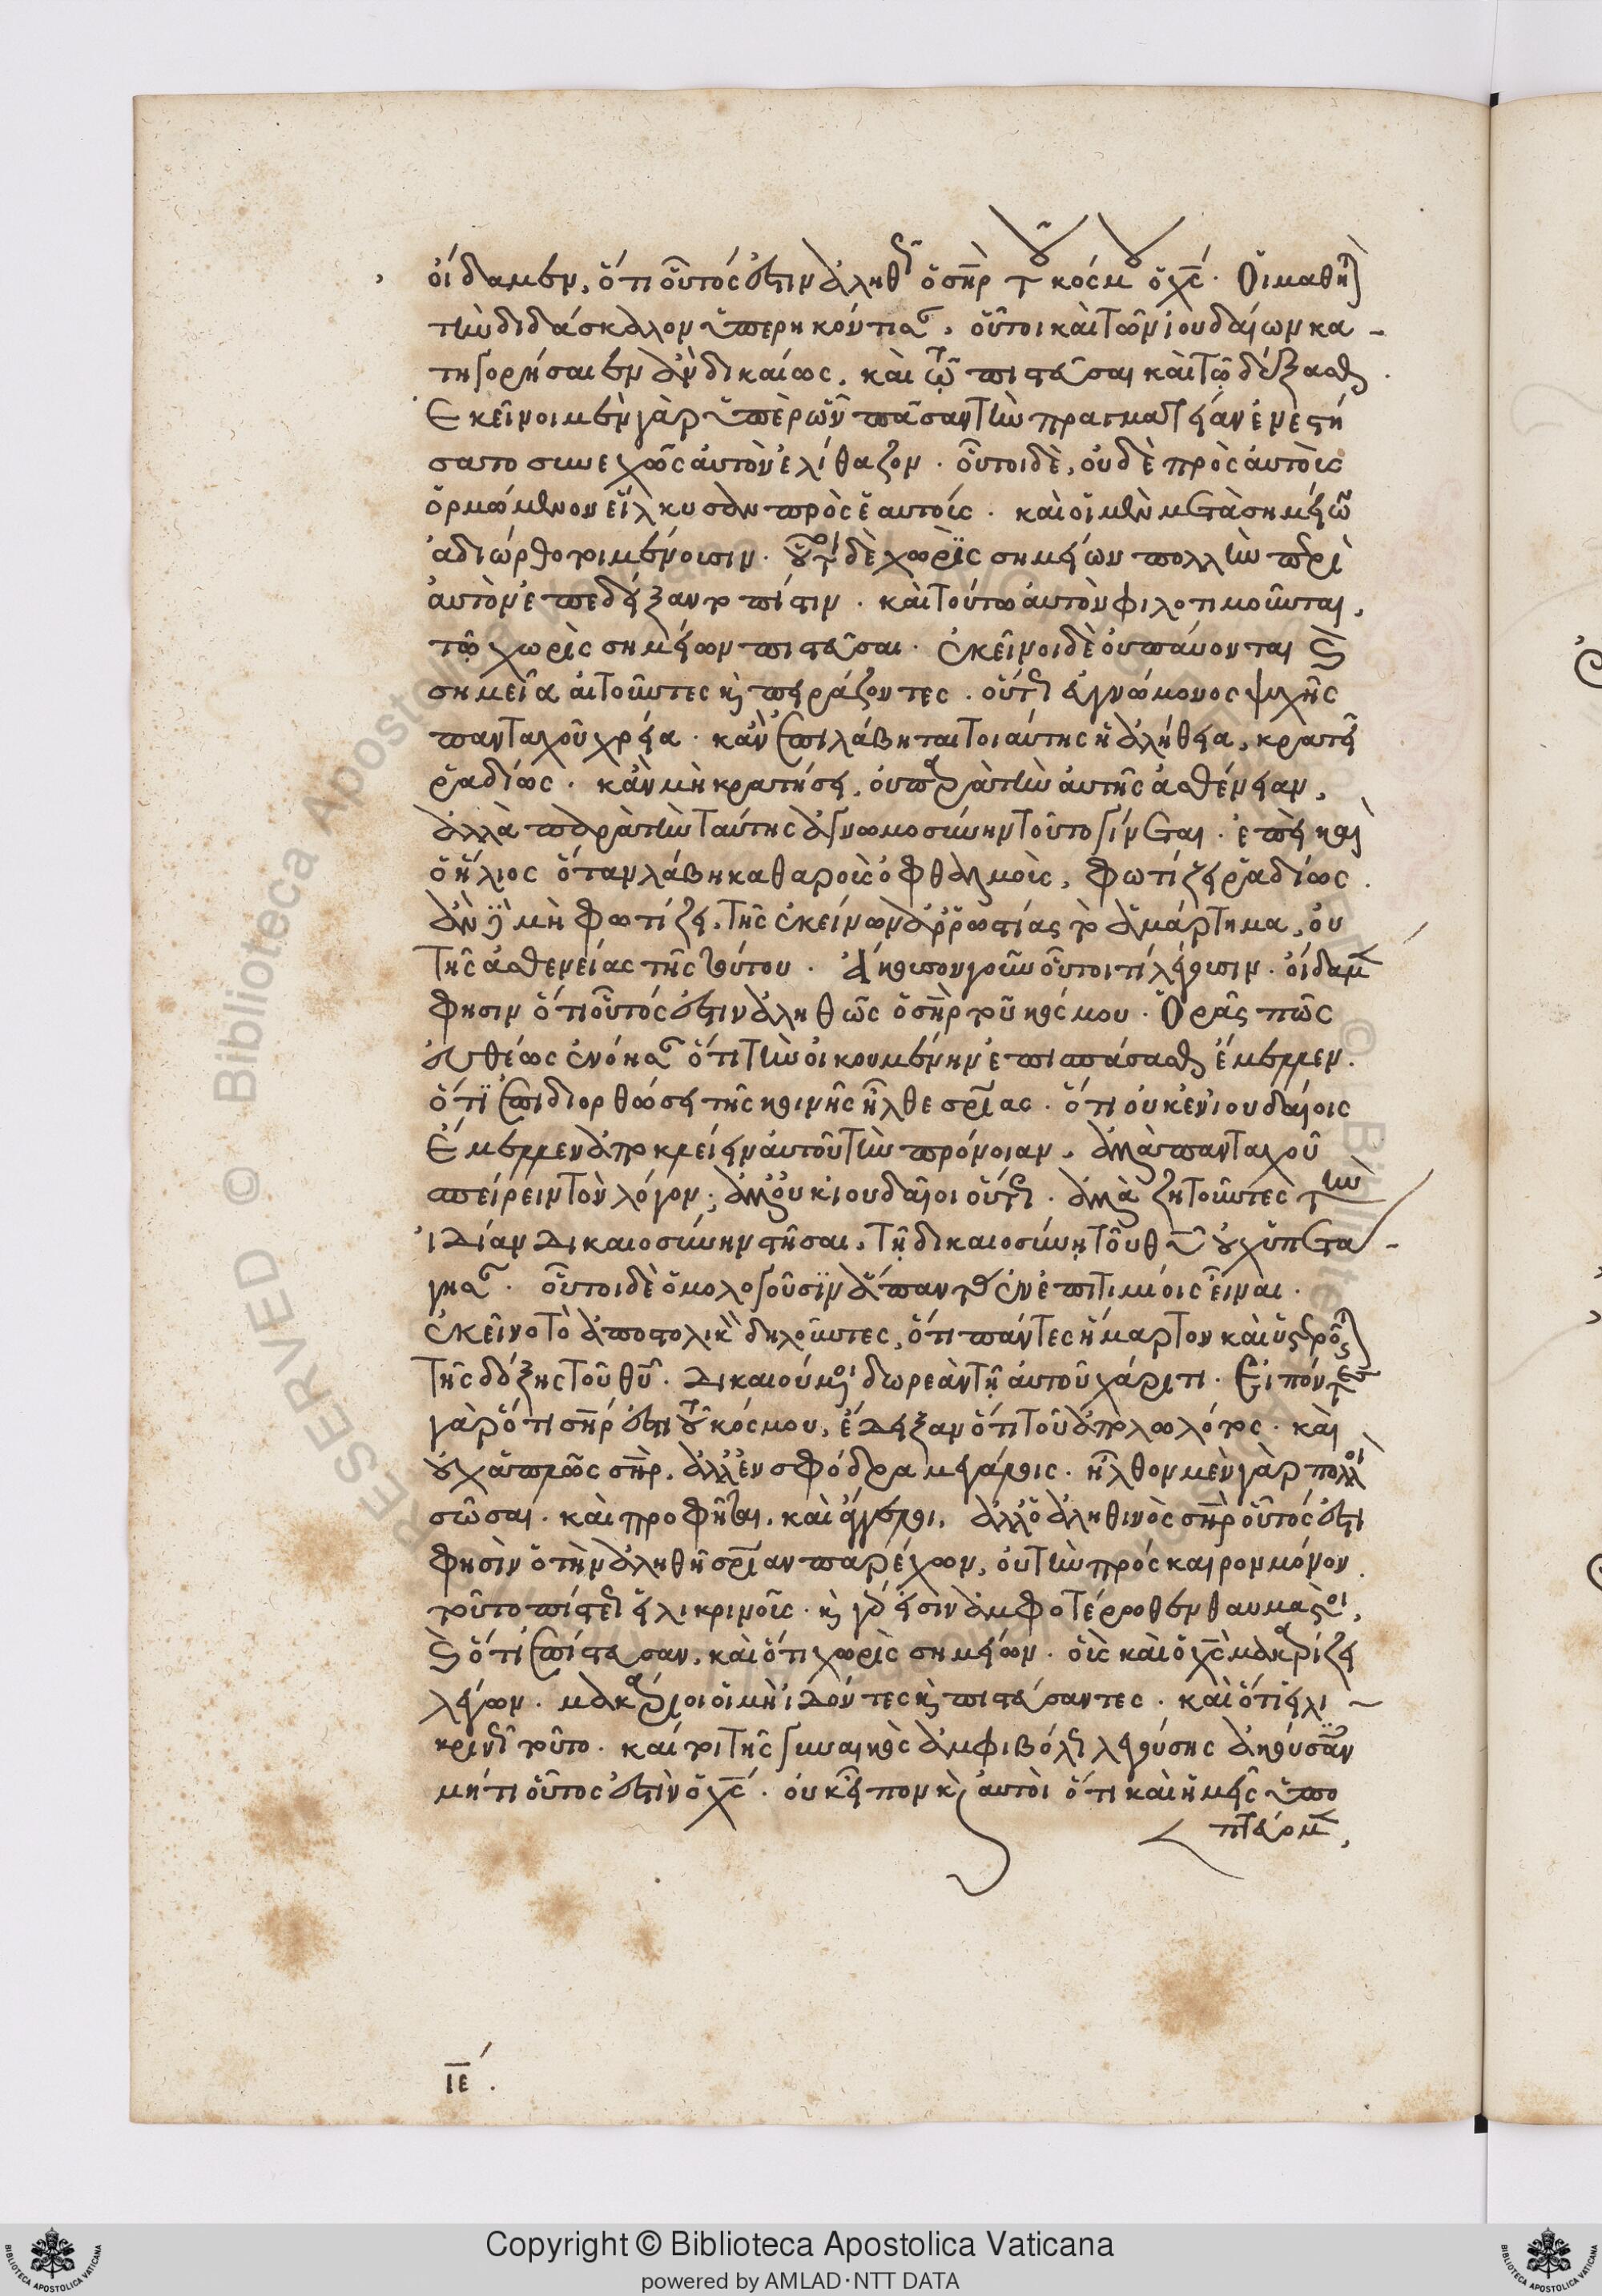 οἴδαμεν, ὅτι οὗτός ἐστιν ἀληθῶς ὁ σ̅ηρ τοῦ κόσμου ὁ χ̅ς. Οἱ μαθηταὶ
τὼν διδάσκαλον ὑπερηκόντισαν. οὗτοι καὶ τῶν ἰουδαίων κα-
τηγορήσαιεν ἂν δικαίως, καὶ τῶ πιστεῦσαι καὶ τῶ δέξασθαι.
Ἐκεῖνοι μὲν γὰρ ὑπὲρ ὧν πᾶσαν τὴν πραγματείαν ἐνεστή
σατο συνεχῶς αὐτὸν ἐλίθαζον. οὗτοι δὲ, οὐδὲ πρὸς αὐτοὺς
ὁρμώμενον εἵλκυσαν πρὸς ἑαυτούς. καὶ οἱ μὲν μετὰ σημείων
ἀδιώρθωτοι μένουσιν. οὗτοι δὲ χωρὶς σημείων πολλὴν περὶ
αὐτὸν ἐπεδείξαντο πίστιν. καὶ τούτω αὐτὸν φιλοτιμοῦνται,
τῶ χωρὶς σημείων πιστεῦσαι. ἐκεῖνοι δὲ οὐ παύονται καὶ
σημεῖα αἰτοῦντες καὶ πειράζοντες. οὕτως εὐγνώμονος ψυχῆς
πανταχοῦ χρεία. κἂν ἐπιλάβηται τοιαύτης ἡ ἀλήθεια, κρατεῖ
ῥαδίως. κἂν μὴ κρατήσῃ, οὐ παρὰ τὴν αὐτῆς ἀσθένειαν,
ἀλλὰ παρὰ τὴν ταύτης ἀγνωμοσύνην τοῦτο γίνεται. ἐπεὶ καὶ
ὁ ἥλιος ὅταν λάβη καθαροὺς ὀφθαλμοὺς, φωτίζει ῥαδίως.
ἂν δὲ μὴ φωτίζῃ, τῆς ἐκείνων ἀρρωστίας τὸ ἁμάρτημα, οὐ
τῆς ἀσθενείας τῆς τούτου. Ἄκουσον γοῦν οὗτοι τί λέγουσιν. οἴδαμεν
φησιν ὅτι οὗτός ἐστιν ἀληθῶς ὁ σ̅ηρ τοῦ κόσμου. Ὁρᾶς πῶς
εὐθέως ἐνόησαν ὅτι τὴν οἰκουμένην ἐπισπάσασθαι ἔμελλεν.
ὅτι ἐπὶ διορθώσει τῆς κοινῆς ἦλθε σρίας. ὅτι οὐκ ἐν ἰουδαίοις
ἔμελλεν ἀποκλείειν αὐτοῦ τὴν πρόνοιαν, ἀλλὰ πανταχοῦ
σπείρειν τὸν λόγον. ἀλλ' οὐκ ἰουδαῖοι οὕτως. ἀλλὰ ζητοῦντες τὴν
ἰδίαν δικαιοσύνην στῆσαι, τῇ δικαιοσύνῃ τοῦ θ̅υ οὐχ ὑπετά-
γησαν. οὗτοι δὲ ὁμολογοῦσιν ἅπαντας ἐν ἐπιτιμίοις εἶναι.
ἐκεῖνο τὸ ἀποστολικὸν δηλοῦντες, ὅτι πάντες ἥμαρτον καὶ ὑστεροῦνται
τῆς δόξης τοῦ θ̅υ. δικαιούμενοι δωρεὰν τῇ αὐτοῦ χάριτι. Εἰπόντες
γὰρ ὅτι σ̅ηρ ἐστι τοῦ κόσμου, ἔδειξαν ὅτι τοῦ ἀπολωλότος. καὶ
οὐχ ἁπλῶς σ̅ηρ, ἀλλ' ἐν σφόδρα μεγάλοις. ἦλθον μὲν γὰρ πολλοὶ
σῶσαι. καὶ προφῆται, καὶ ἄγγελοι, ἀλλ' ὁ ἀληθινὸς σ̅ηρ οὗτός ἐστι
φησὶν ὁ τὴν ἀληθῆ σρίαν παρέχων, οὐ τὴν πρὸς καιρον μόνον.
τοῦτο πίστεως εἰλικρινοῦς. καὶ γάρ εἰσιν ἀμφοτέρωθεν θαυμαστοὶ,
καὶ ὅτι ἐπίστευσαν, καὶ ὅτι χωρὶς σημείων. οὓς καὶ ὁ χ̅ς μακαρίζει
λέγων. μακάριοι οἱ μὴ ἰδόντες καὶ πιστεύσαντες. καὶ ὅτι εἰλι-
κρινῶς τοῦτο. καίτοι τῆς γυναικὸς ἀμφιβόλως λεγούσης ἀκούσαντες
μήτι οὗτος ἐστὶν ὁ χ̅ς. οὐκ εἶπον καὶ αὐτοὶ ὅτι καὶ ἡμεῖς ὑπο
πτεύομεν,
ι̅ε̅.
Copyright © Biblioteca Apostolica Vaticana
powered by AMLAD·NTT DATA